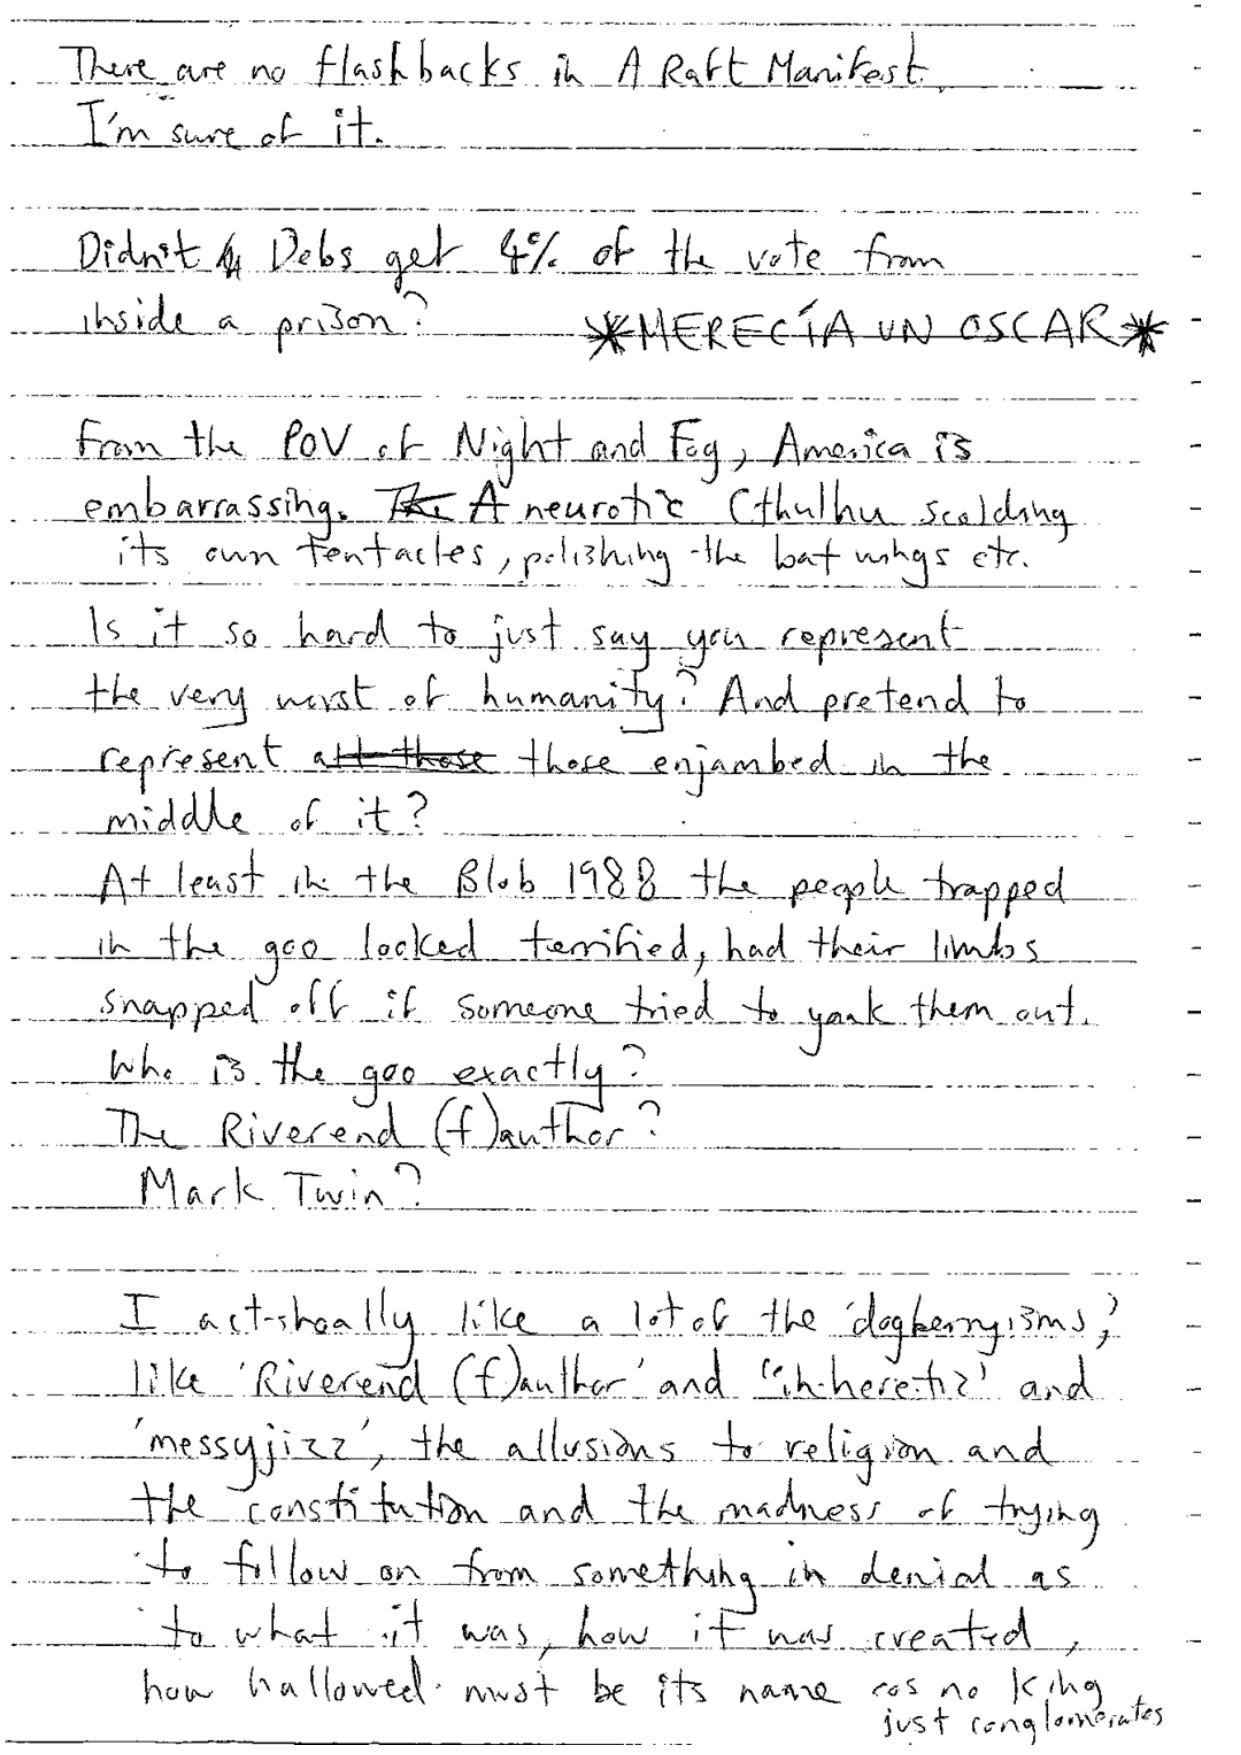 There are no flashbacks in A Raft Manifest.
I'm sure of it.
Didn't Debs get 4% of the vote from
inside a prison?
*MERECÍA UN OSCAR*
From the POV of Night and Fog, America is
embarrassing. The A neurotic Cthulhu scolding
its own tentacles, polishing the bat wings etc.
Is it so hard to just say you represent
the very worst of humanity? And pretend to
represent all those those enjambed in the
middle of it?
At least in the Blob 1988 the people trapped
in the goo looked terrified, had their limbs
snapped off if someone tried to yank them out.
Who is the goo exactly?
The Riverend (f)author?
Mark Twin?
I act-shoally like a lot of the 'dogberryisms,'
like 'Riverend (f)author' and and
'messyjizz', the allusions to religion and
the constitution and the madness of trying
to follow on from something in denial as
to what it was, how it was created,
how hallowed must be its name cos no king
just conglomerates